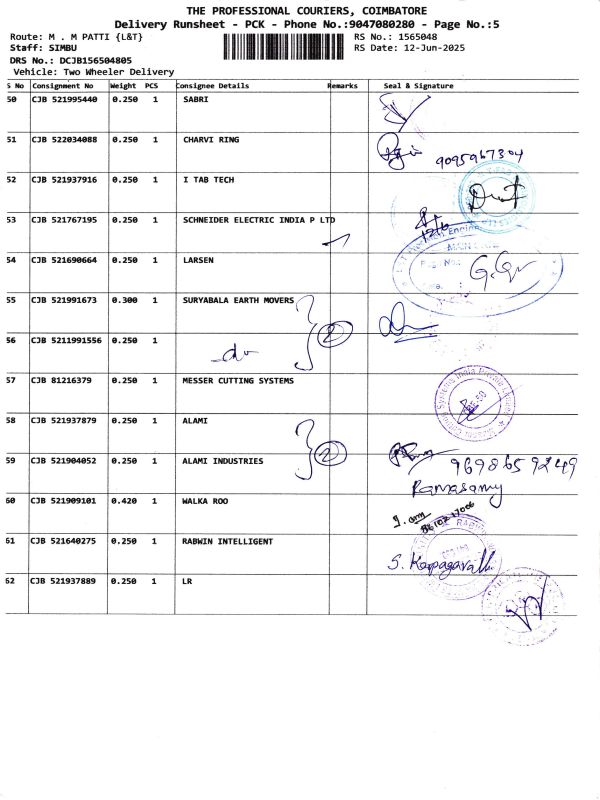 THE PROFESSIONAL COURIERS, COIMBATORE
Delivery Runsheet - PCK - Phone No.:9047080280 - Page No.:5
Route: M . M PATTI {L&T} RS No.: 1565048
Staff: SIMBU RS Date: 12-Jun-2025
DRS No.: DCJB156504805
Vehicle: Two Wheeler Delivery
S No Consignment No Weight PCS Consignee Details Remarks Seal & Signature
50 CJB 521995440 0.250 1 SABRI
51 CJB 522034088 0.250 1 CHARVI RING
9095967304
52 CJB 521937916 0.250 1 I TAB TECH
53 CJB 521767195 0.250 1 SCHNEIDER ELECTRIC INDIA P LTD
12/6
54 CJB 521690664 0.250 1 LARSEN
55 CJB 521991673 0.300 1 SURYABALA EARTH MOVERS
2
56 CJB 5211991556 0.250 1
do
57 CJB 81216379 0.250 1 MESSER CUTTING SYSTEMS
58 CJB 521937879 0.250 1 ALAMI
2
59 CJB 521904052 0.250 1 ALAMI INDUSTRIES
9698659249
Ramasamy
60 CJB 521909101 0.420 1 WALKA ROO
61 CJB 521640275 0.250 1 RABWIN INTELLIGENT
S. Karpagavalli
62 CJB 521937889 0.250 1 LR